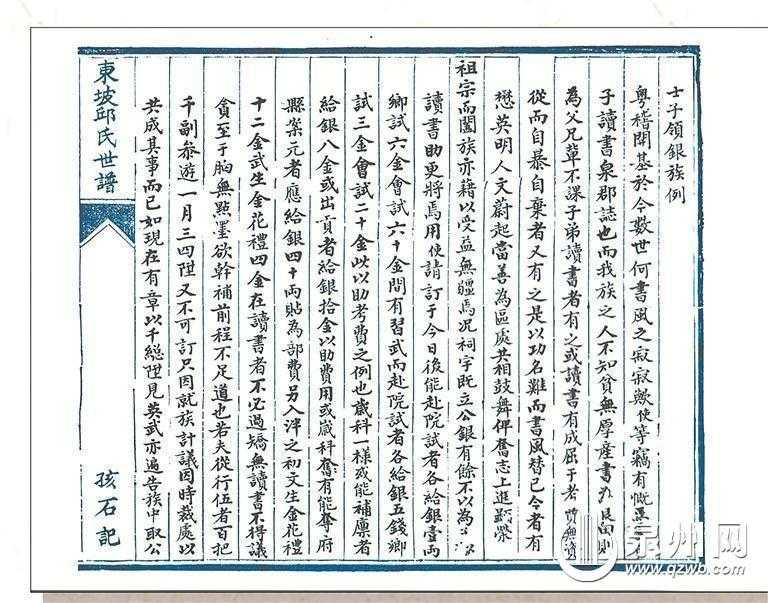 士子領銀族例
粵稽開基於今數世何書風之寂寂歟使等竊有慨焉
子讀書泉郡誌也而我族之人不知貧無厚產書
為父兄輩不課子弟讀書者有之或讀書有成屈于考
從而自暴自棄者又有之是以功名難而書風替已今者有
懋英明人文蔚起當善為區處共相鼓舞俾奮志上進
祖宗而闔族亦藉以受益無疆焉況祠宇既立公銀有餘不以為
讀書助更將焉用使請訂于今日後能赴院試者各給銀壹兩
鄉試六金會試六十金間有習武而赴院試者各給銀五錢鄉
試三金會試二十金此以助考費之例也歲科一樣或能補廩者
給銀八金或出貢者給銀拾金以助費用或歲科奮有能奪府
縣案元者應給銀四十兩貼為部費另入泮之初文生金花禮
十二金武生金花禮四金在讀書者不必過矯無讀書不得議
貪至于胸無點墨欲幹補前程不足道也若夫從行伍者百把
千副參遊一月三四陞又不可訂只因就族計議因時裁處以
共成其事而已如現在有章以千總陞見英武亦遍告族中取公
東坡邱氏世譜
孩石記
泉州网
www.qzwb.com